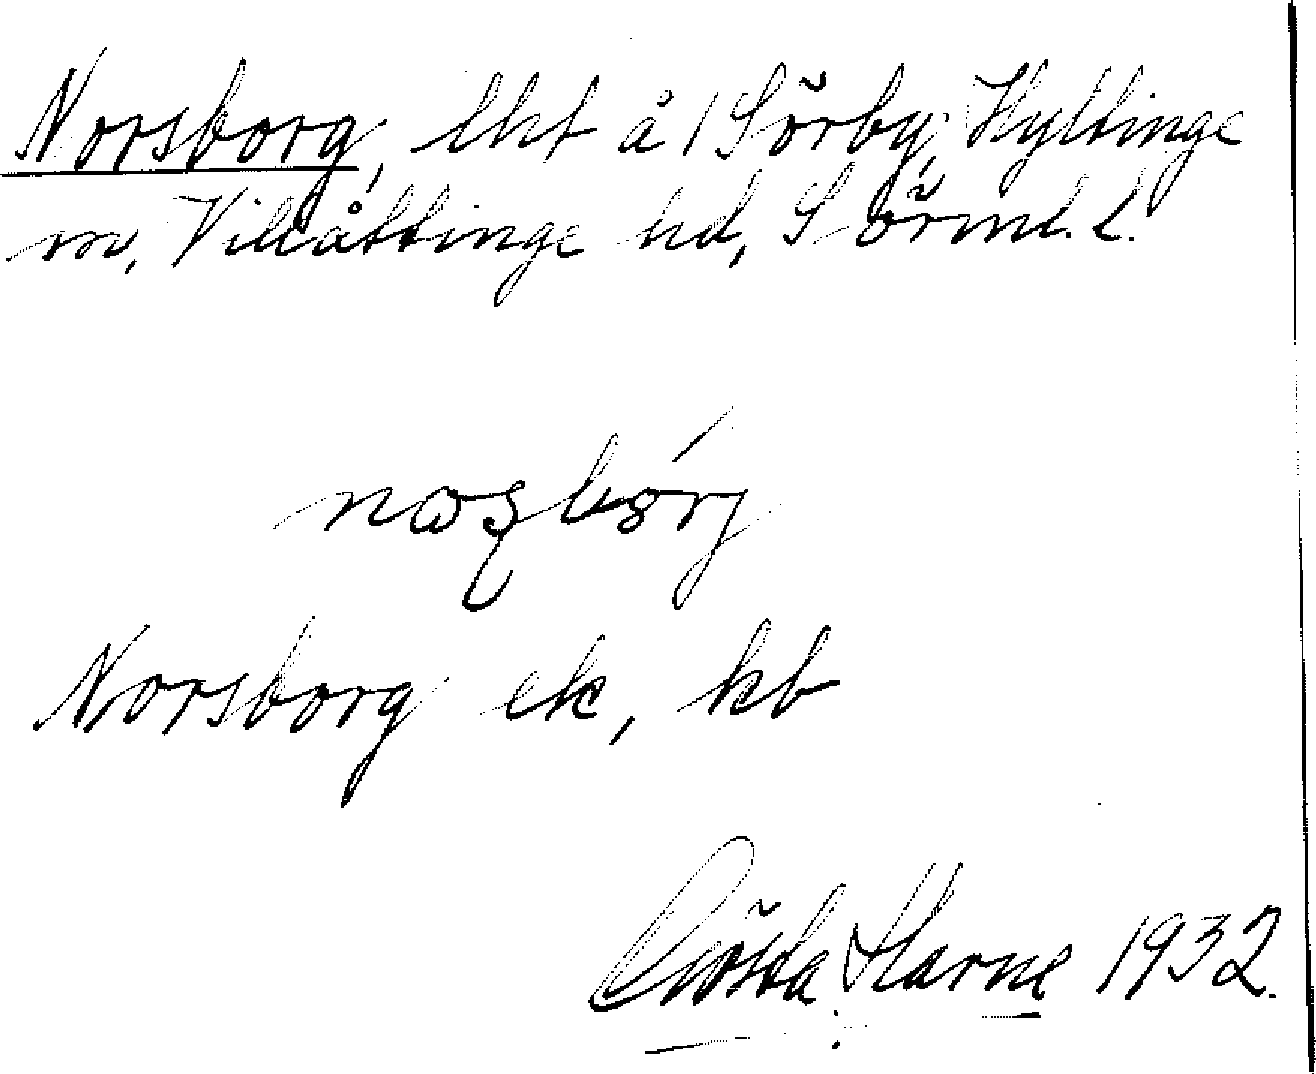 Norsborg, lht å 1 Sörby, Hyltinge
sn, Villåttinge hd, Sörml. l.
Norsborg ek, kb
Gösta Harne 1932.